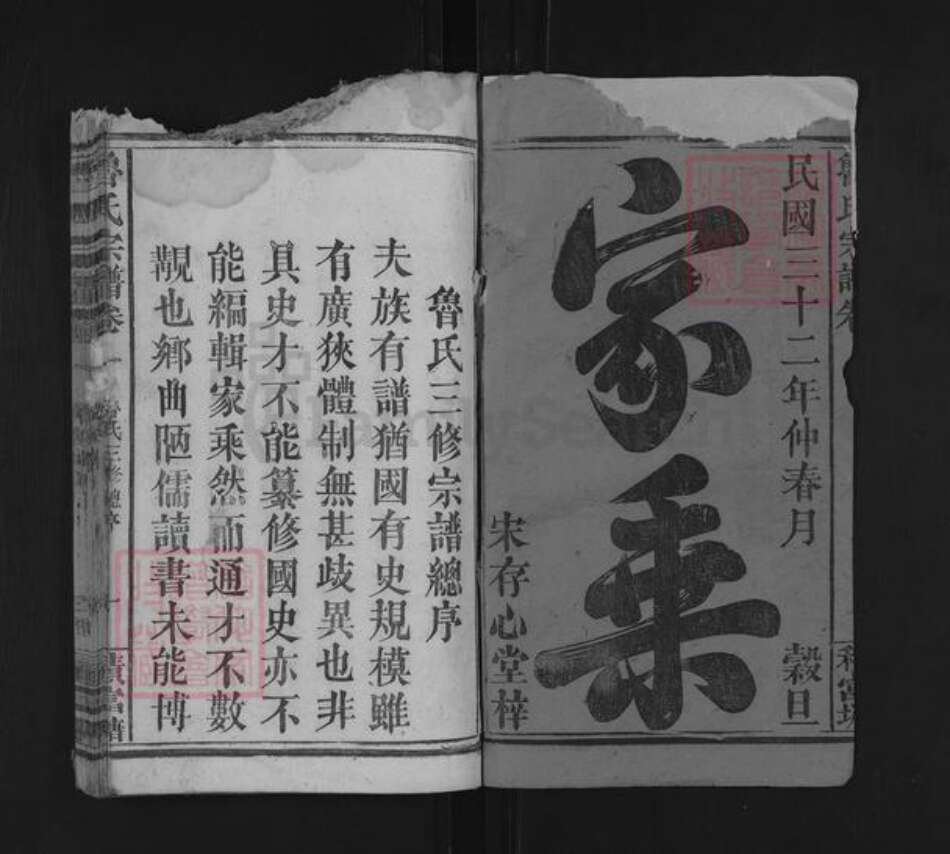 民國三十二年仲春月 穀旦
家乘
宋存心堂梓
魯氏三修宗譜總序
夫族有譜猶國有史規模雖
有廣狹體制無甚歧異也非
具史才不能纂修國史亦不
能編輯家乘然而通才不數
覯也鄉曲陋儒讀書未能博
魯氏宗譜卷一 魯氏三修總序 一